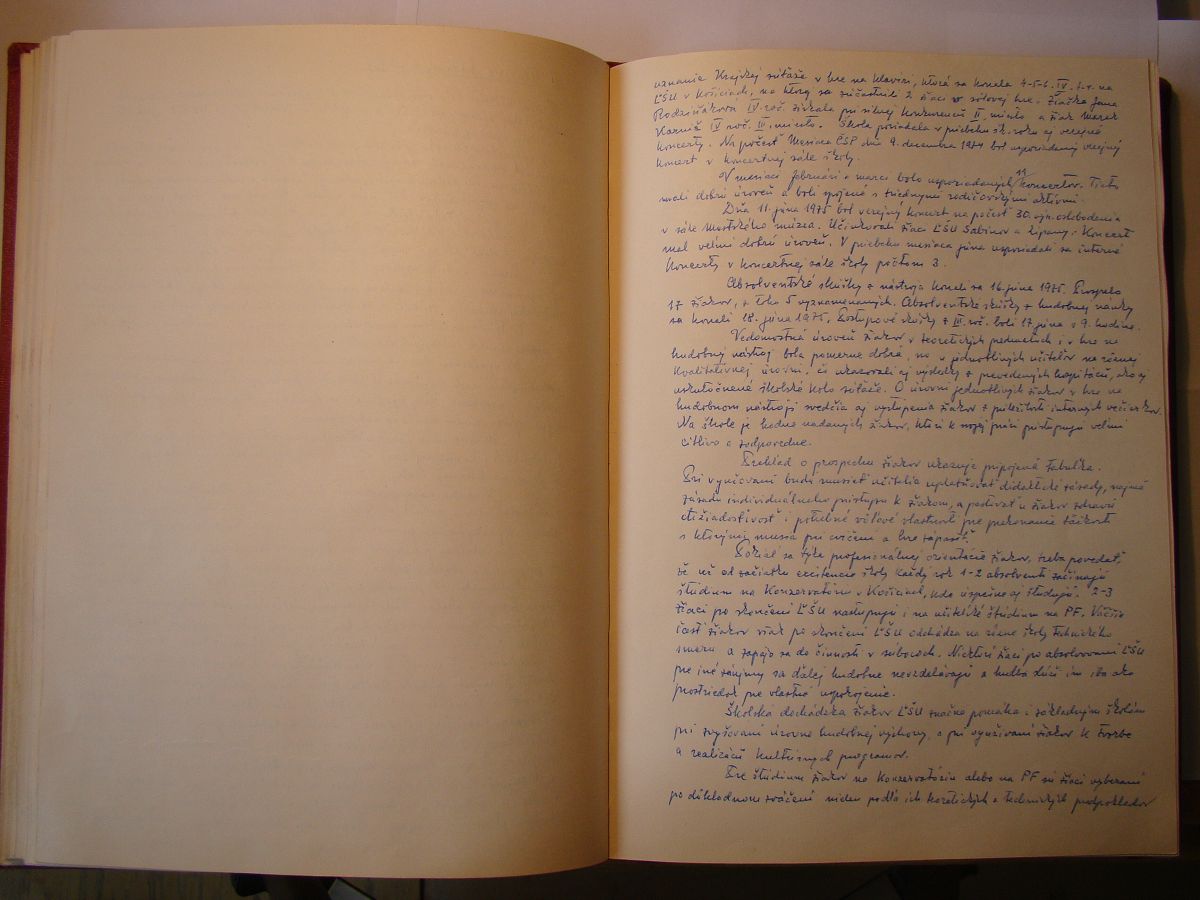 uznanie Krajskej súťaže v hre na klavíri, ktorá sa konala 4-5-6. IV. t.r. na
ĽŠU v Košiciach, na ktorej sa zúčastnili 2 žiaci v sólovej hre. Žiačka Jana
IV. roč. získala pri silnej konkurencii II. miesto a žiak Marek
IV roč. III. miesto. Škola poriadala v priebehu šk. roku aj verejné
koncerty. Na počesť Mesiaca ČSP dňa 9. decembra 1974 bol usporiadaný verejný
koncert v koncertnej sále školy.
V mesiaci februári a marci bolo usporiadaných 11 koncertov. Tieto
mali dobrú úroveň a boli spojené s triednymi rodičovskými aktívmi.
Dňa 11. júna 1975 bol verejný koncert na počesť 30. výr. oslobodenia
v sále Mestského múzea. Účinkovali žiaci ĽŠU Sabinov a Lipany. Koncert
mal veľmi dobrú úroveň. V priebehu mesiaca júna usporiadali sa interné
koncerty v koncertnej sále školy počtom 3.
Absolventské skúšky z nástroja konali sa 16. júna 1975. Prospelo
17 žiakov, z toho 5 vyznamenaných. Absolventské skúšky z hudobnej náuky
sa konali 18. júna 1975. Postupové skúšky z III. roč. boli 17 júna o 9. hodine.
Vedomostná úroveň žiakov v teoretických predmetoch i v hre na
hudobný nástroj bola pomerne dobrá, no u jednotlivých učiteľov na rôznej
kvalitatívnej úrovni, čo ukazovali aj výsledky z prevedených hospitácií, ako aj
uskutočnené školské kolo súťaže. O úrovni jednotlivých žiakov v hre na
hudobnom nástroji svedčia aj vystúpenia žiakov z príležitosti interných večierkov.
Na škole je hodne nadaných žiakov, ktorí k svojej práci pristupujú veľmi
citlivo a zodpovedne.
Prehľad o prospechu žiakov ukazuje pripojená tabuľka.
Pri vyučovaní budú musieť učitelia uplatňovať didaktické zásady, najmä
zásadu individuálneho prístupu k žiakom, a pestovať u žiakov zdravú
ctižiadostivosť i potrebné vôľové vlastnosti pre prekonanie ťažkostí
s ktorými musia pri cvičení a hre zápasiť.
Pokiaľ sa týka profesionálnej orientácie žiakov, treba povedať,
že už od začiatku existencie školy každý rok 1-2 absolventi začínajú
štúdium na Konzervatóriu v Košiciach, kde úspešne aj študujú. 2-3
žiaci po skončení ĽŠU nastupujú i na učiteľské štúdium na PF. Väčšia
časť žiakov však po skončení ĽŠU odchádza na rôzne školy technického
smeru a zapája sa do činnosti v súboroch. Niektorí žiaci po absolvovaní ĽŠU
pre iné záujmy sa ďalej hudobne nevzdelávajú a hudba slúži im iba ako
prostriedok pre vlastné uspokojenie.
Školská dochádzka žiakov ĽŠU značne pomáha i základným školám
pri zvyšovaní úrovne hudobnej výchovy, a pri využívaní žiakov k tvorbe
a realizácii kultúrnych programov.
Pre štúdium žiakov na Konzervatóriu alebo na PF sú žiaci vyberaní
po dôkladnom zvážení podľa ich teoretických a technických predpokladov